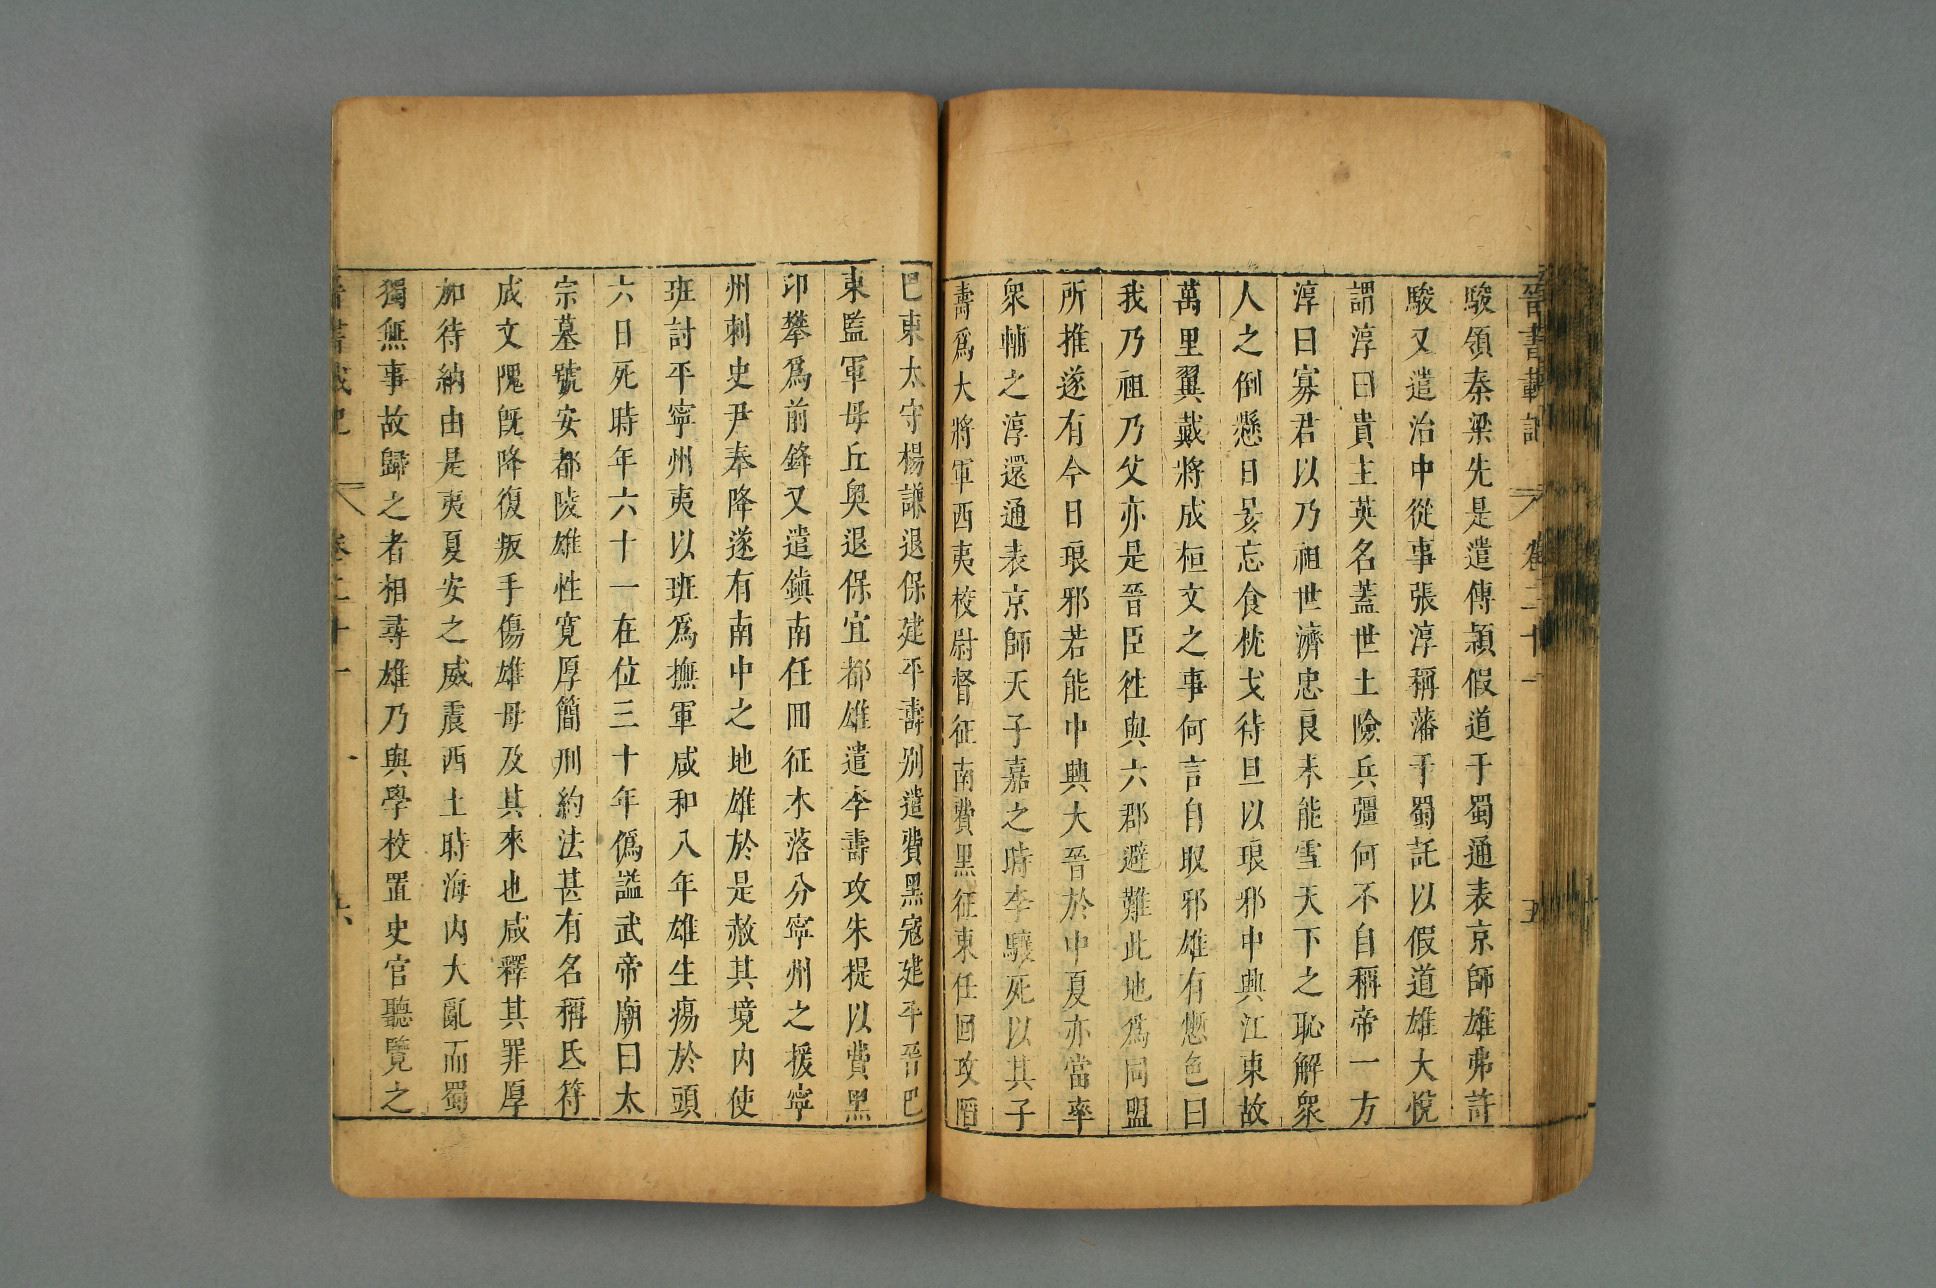 晉書載記 卷二十一 五
駿領秦梁先是遣傳頴假道于蜀通表京師雄弗許
駿又遣治中從事張淳稱藩于蜀託以假道雄大悅
謂淳曰貴主英名蓋世土險兵彊何不自稱帝一方
淳曰寡君以乃祖世濟忠良未能雪天下之恥解衆
人之倒懸日昃忘食枕戈待旦以琅邪中興江東故
萬里翼戴將成桓文之事何言自取邪雄有慙色曰
我乃祖乃父亦是晉臣徃與六郡避難此地爲同盟
所推遂有今日琅邪若能中興大晉於中夏亦當率
衆輔之淳還通表京師天子嘉之時李驤死以其子
壽爲大將軍西夷校尉督征南費黑征東任回攻陷
巴東太守楊謙退保建平壽別遣費黑寇建平晉巴
東監軍毋丘奥退保宜都雄遣李壽攻朱提以費黑
卬攀爲前鋒又遣鎮南任回征木落分寧州之援寧
州刺史尹奉降遂有南中之地雄於是赦其境內使
班討平寧州夷以班爲撫軍咸和八年雄生瘍於頭
六日死時年六十一在位三十年僞謚武帝廟曰太
宗墓號安都陵雄性寛厚簡刑約法甚有名稱氐苻
成文隗旣降復叛手傷雄母及其來也咸釋其罪厚
加待納由是夷夏安之威震西土時海內大亂而蜀
獨無事故歸之者相尋雄乃與學校置史官聽覽之
晉書載記 卷二十一 六